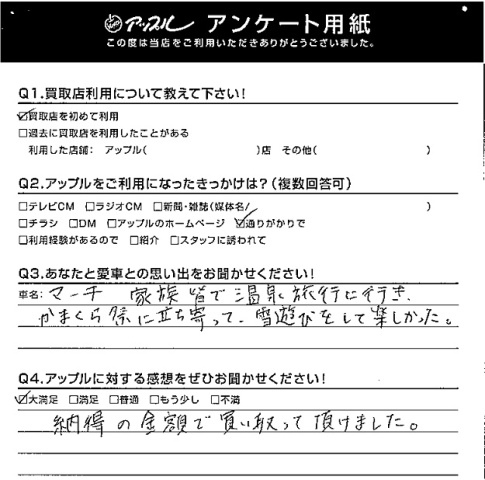 アップル アンケート用紙
この度は当店をご利用いただきありがとうございました。
Q1.買取店利用について教えて下さい!
☑買取店を初めて利用
□過去に買取店を利用したことがある
利用した店舗： アップル( )店 その他( )
Q2.アップルをご利用になったきっかけは?(複数回答可)
□テレビCM □ラジオCM □新聞・雑誌(媒体名/ )
□チラシ □DM □アップルのホームページ ☑通りがかりで
□利用経験があるので □紹介 □スタッフに誘われて
Q3.あなたと愛車との思い出をお聞かせください!
車名: マーチ 家族皆で温泉旅行に行き、
かまくら祭に立ち寄って、雪遊びをして楽しかった。
Q4.アップルに対する感想をぜひお聞かせください!
☑大満足 □満足 □普通 □もう少し □不満
納得の金額で買い取って頂けました。